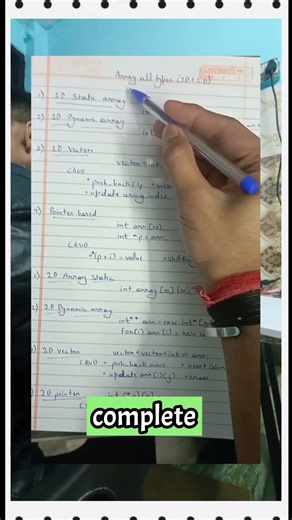 Array all types (1D + 2D)
1) 1D Static array
2) 1D Dynamic array
int
3) 1D Vectors
vector<int
CRUD
• push_back()
• update using index
4) Pointer based
int arr[10];
int *p = arr;
CRUD
*(p+i) = value • shifting
1) 2D Array Static
int array[m]
2) 2D Dynamic array
int** arr = new int*
for(i) arr[i] = new
2D Vector
vector<vector<int>> arr;
CRUD • push_back • insert
• update arr[i][j] • erase
2D pointer
complete